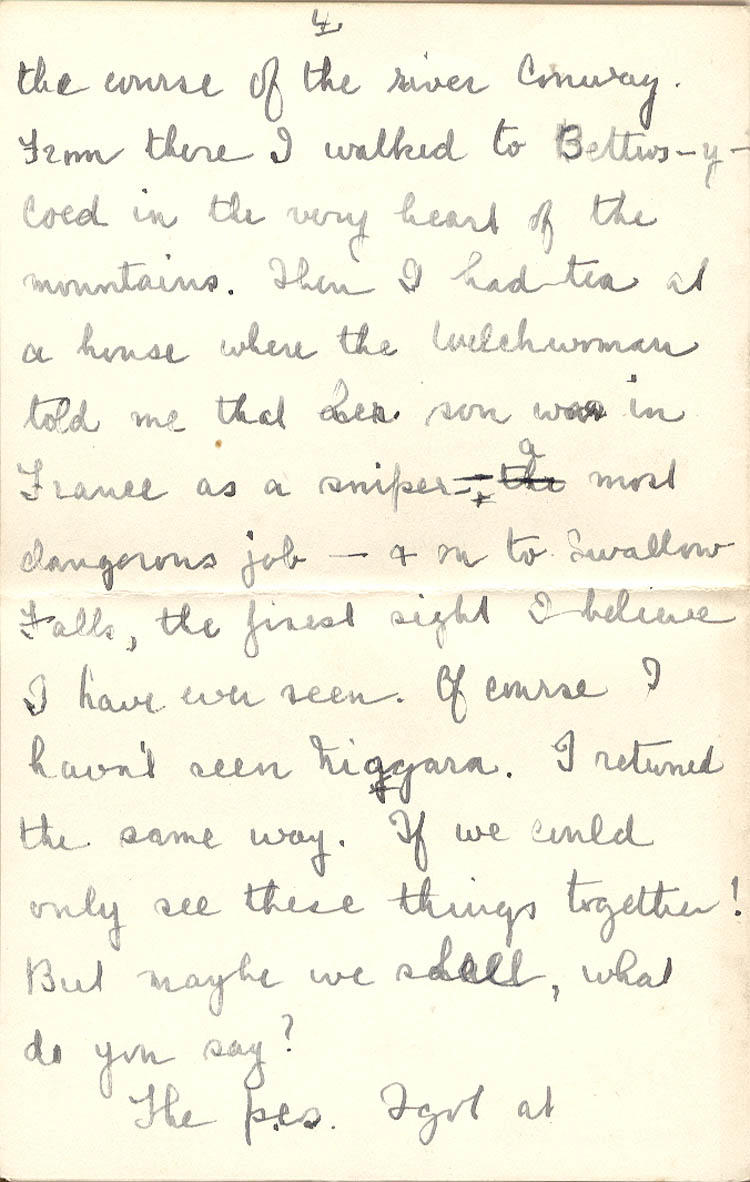 4
the course of the river Conway.
From there I walked to Bettws-y-
Coed in the very heart of the
mountains. Then I had tea at
a house where the Welchwoman
told me that her son was in
France as a sniper - a most
dangerous job - & on to Swallow
Falls, the finest sight I believe
I have ever seen. Of course I
havn't seen Niagara. I returned
the same way. If we could
only see these things together!
But maybe we shall, what
do you say?
The p.cs. I got at